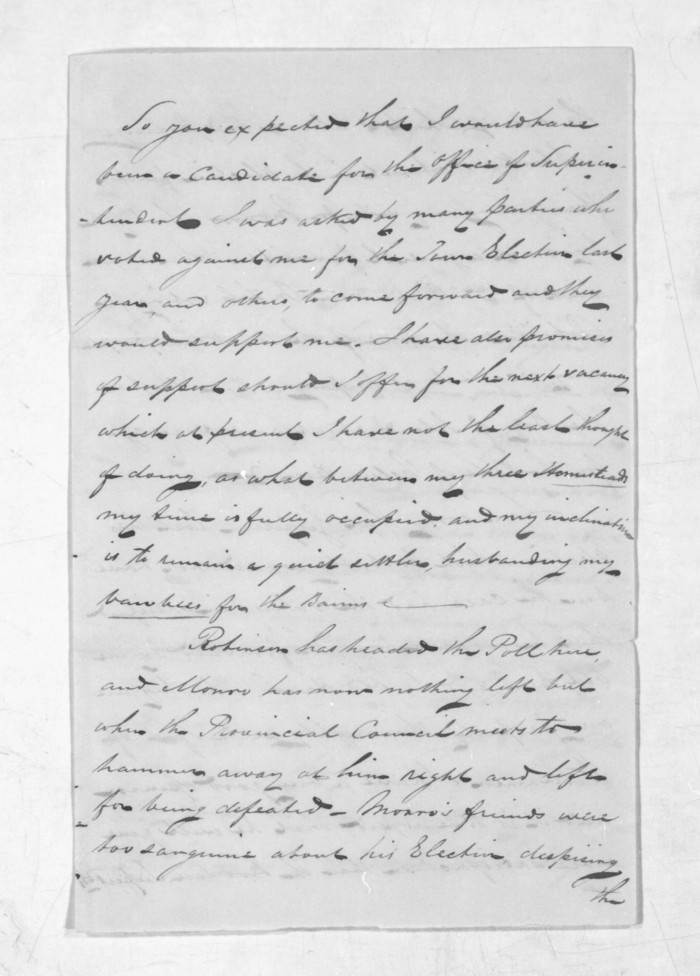 So you expected that I would have
been a Candidate for the office of Superin-
-tendent I was asked by many parties who
voted against me for the Town Election last
year, and others, to come forward and they
would support me. I have also promises
of support should I offer for the next vacancy
which at present I have not the least thought
of doing, as what between my three Homesteads
my time is fully occupied, and my inclination
is to remain a quiet settler, husbanding my
bawbees for the Bairns
Robinson has headed the Poll here,
and Monro has now nothing left but
when the Provincial Council meets to
hammer away at him right and left
for being defeated - Monro's friends were
too sanguine about his Election despising
the